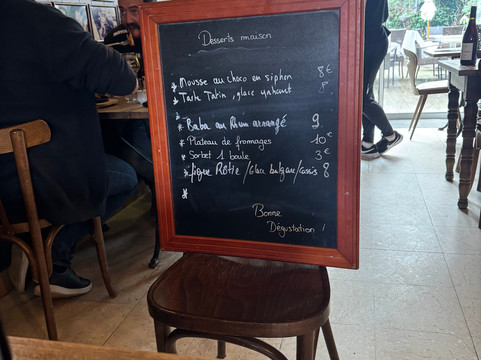 Desserts maison
* Mousse au choco en siphon 8€
* Tarte Tatin, glace yahourt 8
*
* Baba au Rhum arrangé 9
* Plateau de fromages 10€
* Sorbet 1 boule 3€
* figue Rôtie / Glace bulgare/cassis 8
*
Bonne
Dégustation !